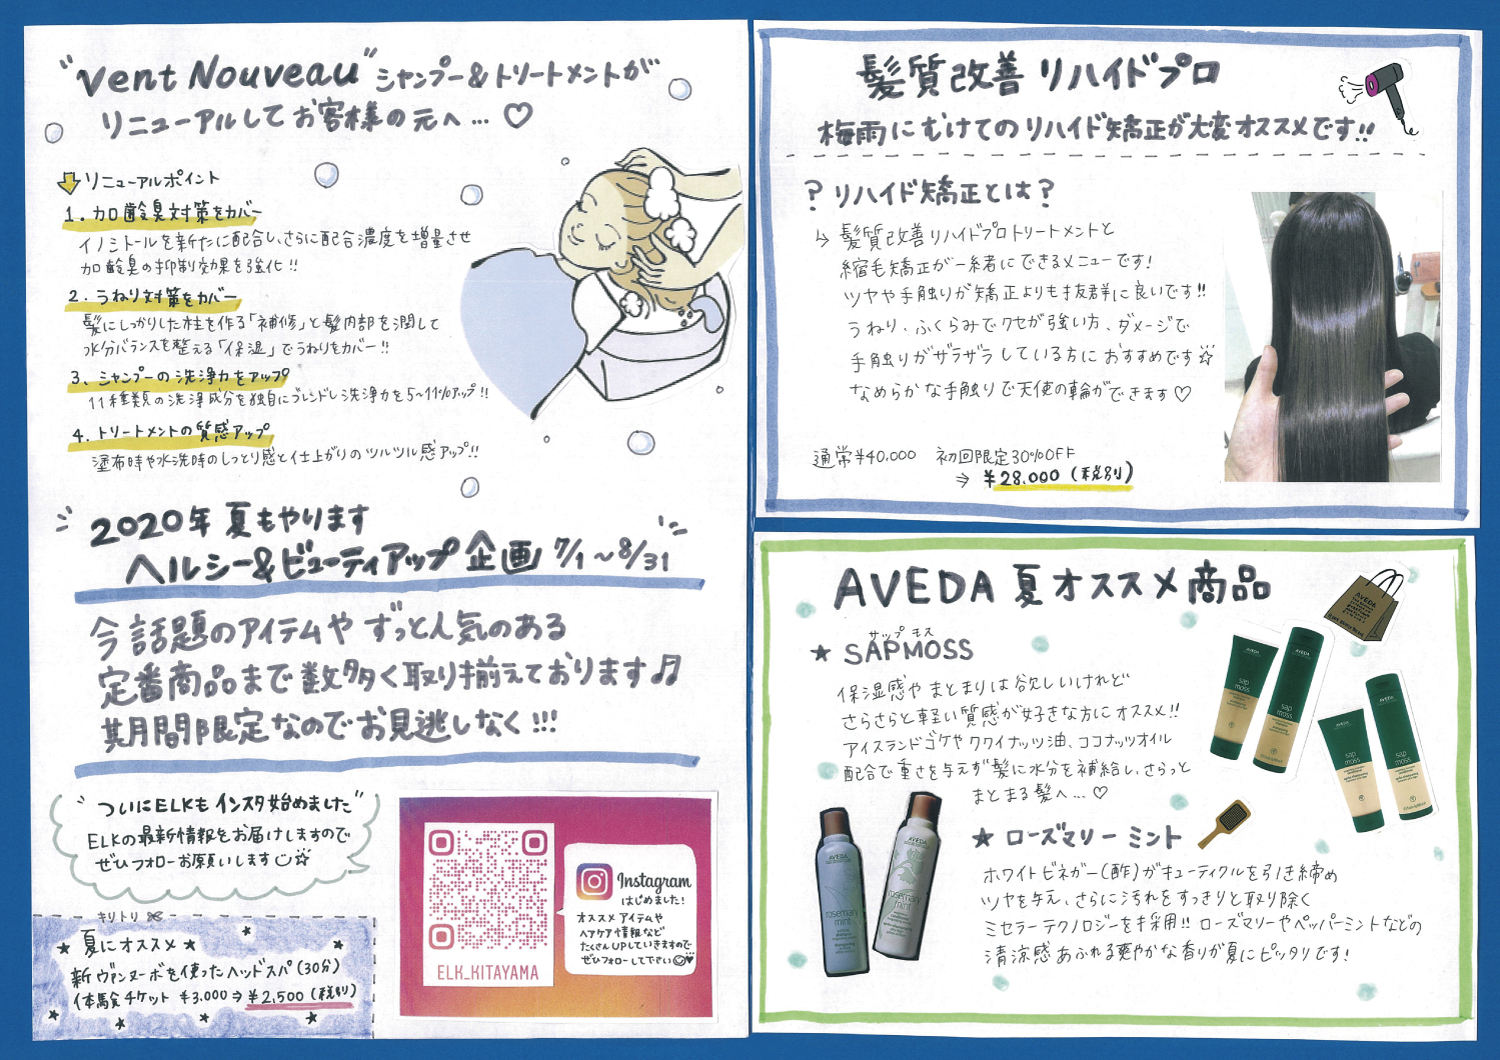 "Vent Nouveau" シャンプー&トリートメントが
リニューアルしてお客様の元へ…♡
リニューアルポイント
1. 加齢臭対策をカバー
イノミトールを新たに配合し、さらに配合濃度を増量させ
加齢臭の抑制効果を強化!!
2. うねり対策をカバー
髪にしっかりした柱を作る「補修」と髪内部を潤して
水分バランスを整える「保湿」でうねりをカバー!!
3. シャンプーの洗浄力をアップ
11種類の洗浄成分を独自にブレンドし洗浄力を5~11%アップ!!
4. トリートメントの質感アップ
塗布時や水洗時のしっとり感と仕上がりのツルツル感アップ!!
2020年 夏もやります
ヘルシー&ビューティアップ企画 7/1~8/31
今話題のアイテムや ずっと人気のある
定番商品まで数多く取り揃えております♫
期間限定なのでお見逃しなく!!!
"ついにELKも インスタ始めました"
ELKの最新情報をお届けしますので
ぜひフォローお願いします☺☆
キリトリ
★ 夏にオススメ ★
新ヴァンヌーボを使ったヘッドスパ(30分)
体験チケット ¥3,000⇒¥2,500(税別)
ELK_KITAYAMA
Instagram
はじめました!
オススメアイテムや
ヘアケア情報など
たくさんUPしていきますので…
ぜひフォローして下さい☺♥
髪質改善 リハイドプロ
梅雨にむけてのリハイド矯正が大変オススメです!!
? リハイド矯正とは?
↳ 髪質改善リハイドプロトリートメントと
縮毛矯正が一緒にできるメニューです!
ツヤや手触りが矯正よりも抜群に良いです!!
うねり、ふくらみでクセが強い方、ダメージで
手触りがザラザラしている方におすすめです☆
なめらかな手触りで天使の輪ができます♡
通常¥40,000 初回限定30%OFF
⇒ ¥28,000(税別)
AVEDA 夏オススメ商品
AVEDA
サップ モス
★ SAPMOSS
保湿感や まとまりは欲しいけれど
さらさらと軽い質感が好きな方にオススメ!!
アイスランドゴケやククイナッツ油、ココナッツオイル
配合で重さを与えず髪に水分を補給し、さらっと
まとまる髪へ…♡
AVEDA
sap
moss
AVEDA
sap
moss
AVEDA
sap
moss
AVEDA
sap
moss
★ ローズマリー ミント
ホワイトビネガー(酢)がキューティクルを引き締め
ツヤを与え、さらに汚れをすっきりと取り除く
ミセラーテクノロジーを採用!! ローズマリーやペッパーミントなどの
清涼感あふれる爽やかな香りが夏にピッタリです!
AVEDA
rosemary
mint
AVEDA
rosemary
mint